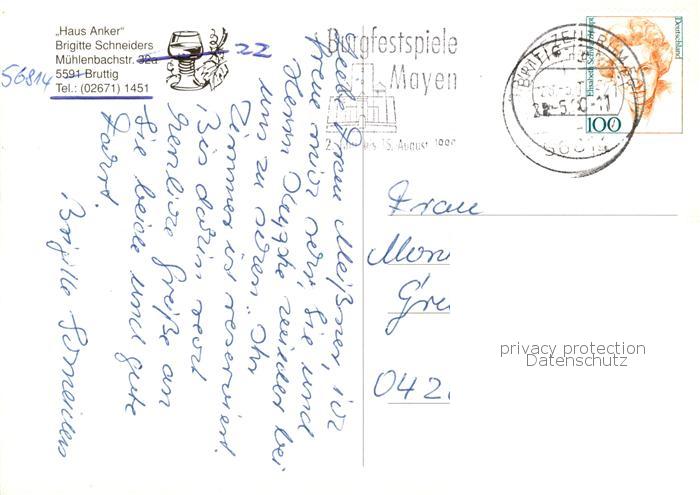 „Haus Anker"
Brigitte Schneiders
Mühlenbachstr. 32a 22
56814
5591 Bruttig
Tel.: (02671) 1451
Burgfestspiele
Mayen
15. August
Deutschland
100
56814
Liebe Frau Meißner, ich
freue mich sehr, Sie und
Herrn wieder bei
uns zu sehen. Ihr
Zimmer ist reserviert.
Bis dahin recht
herzliche Grüße an
Sie beide und gute
Fahrt.
Brigitte Schneiders
Frau
Mon
Gre
042
privacy protection
Datenschutz